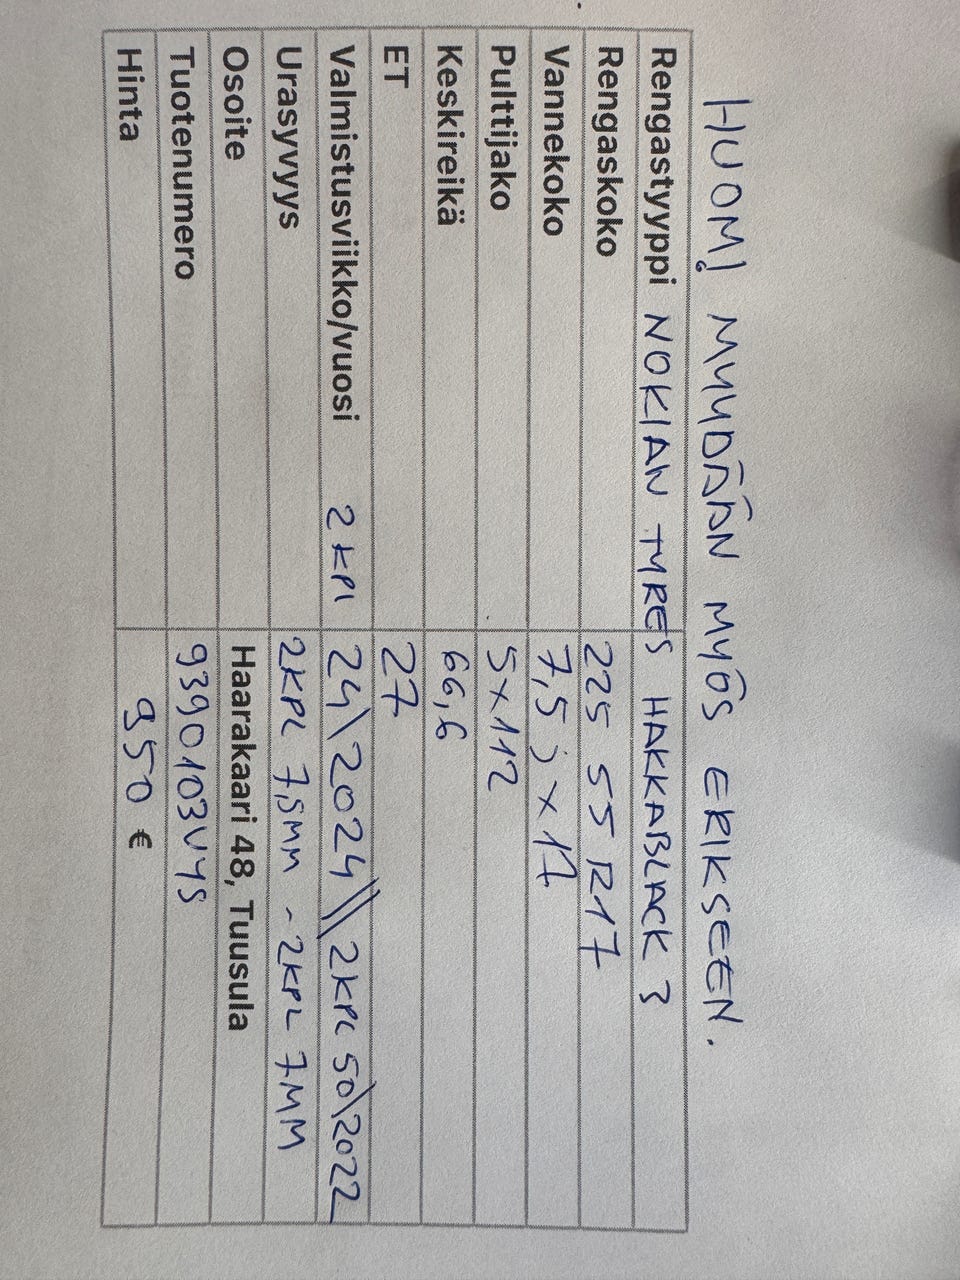 HUOM! MYYDÄÄN MYÖS ERIKSEEN.
Rengastyyppi NOKIAN TYRES HAKKABLACK 3
Rengaskoko 225 55 R17
Vannekoko 7,5 j x 17
Pulttijako 5x112
Keskireikä 66,6
ET 27
Valmistusviikko/vuosi 2 KPL 24\2024 \\ 2KPL 50\2022
Urasyvyys 2KPL 7,5MM - 2KPL 7MM
Osoite Haarakaari 48, Tuusula
Tuotenumero 9390103VYS
Hinta 950 €